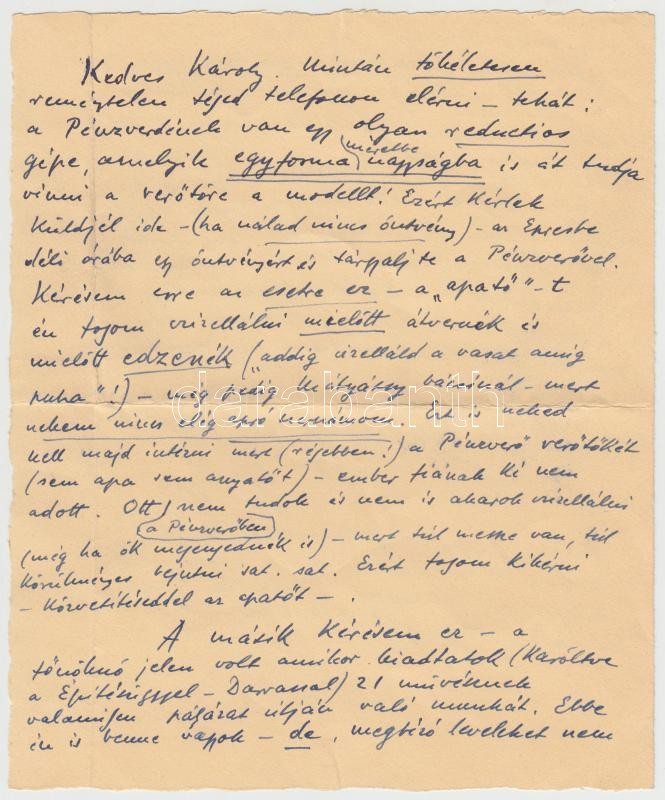 Kedves Károly. Miután tökéletesen
reménytelen téged telefonon elérni – tehát:
a Pénzverdének van egy olyan reductios
gépe, amelyik egyforma nagyságba is át tudja
méretbe
vinni a verőtőre a modellt! Ezért kérlek
küldjél ide – (ha nálad nincs öntvény) – az Epresbe
déli órába egy öntvényért és tárgyalj te a Pénzverővel.
Kérésem erre az esetre ez – a „apatő"-t
én fogom cizellálni mielőtt átvernék és
mielőtt edzenék („addig cizelláld a vasat amíg
puha"!) – még pedig Mátyássy bácsinál – mert
nekem nincs elég apró szerszámom. Ezt is neked
kell majd intézni mert (régebben!) a Pénzverő verőtőkét
(sem apa sem anyatőt) – ember fiának ki nem
adott. Ott nem tudok és nem is akarok cizellálni
(a Pénzverőben)
(még ha ők megengednék is) – mert túl messze van, túl
körülményes bejutni sat. sat. Ezért fogom kikérni
– közvetítéseddel az apatőt – .
A másik kérésem ez – a
főnöknő jelen volt amikor kiadtátok (karöltve
a Építésüggyel – Darvassal) 21 művésznek
valamilyen pályázat útján való munkát. Ebbe
én is benne vagyok – de, megbízó leveleket nem
darabanth